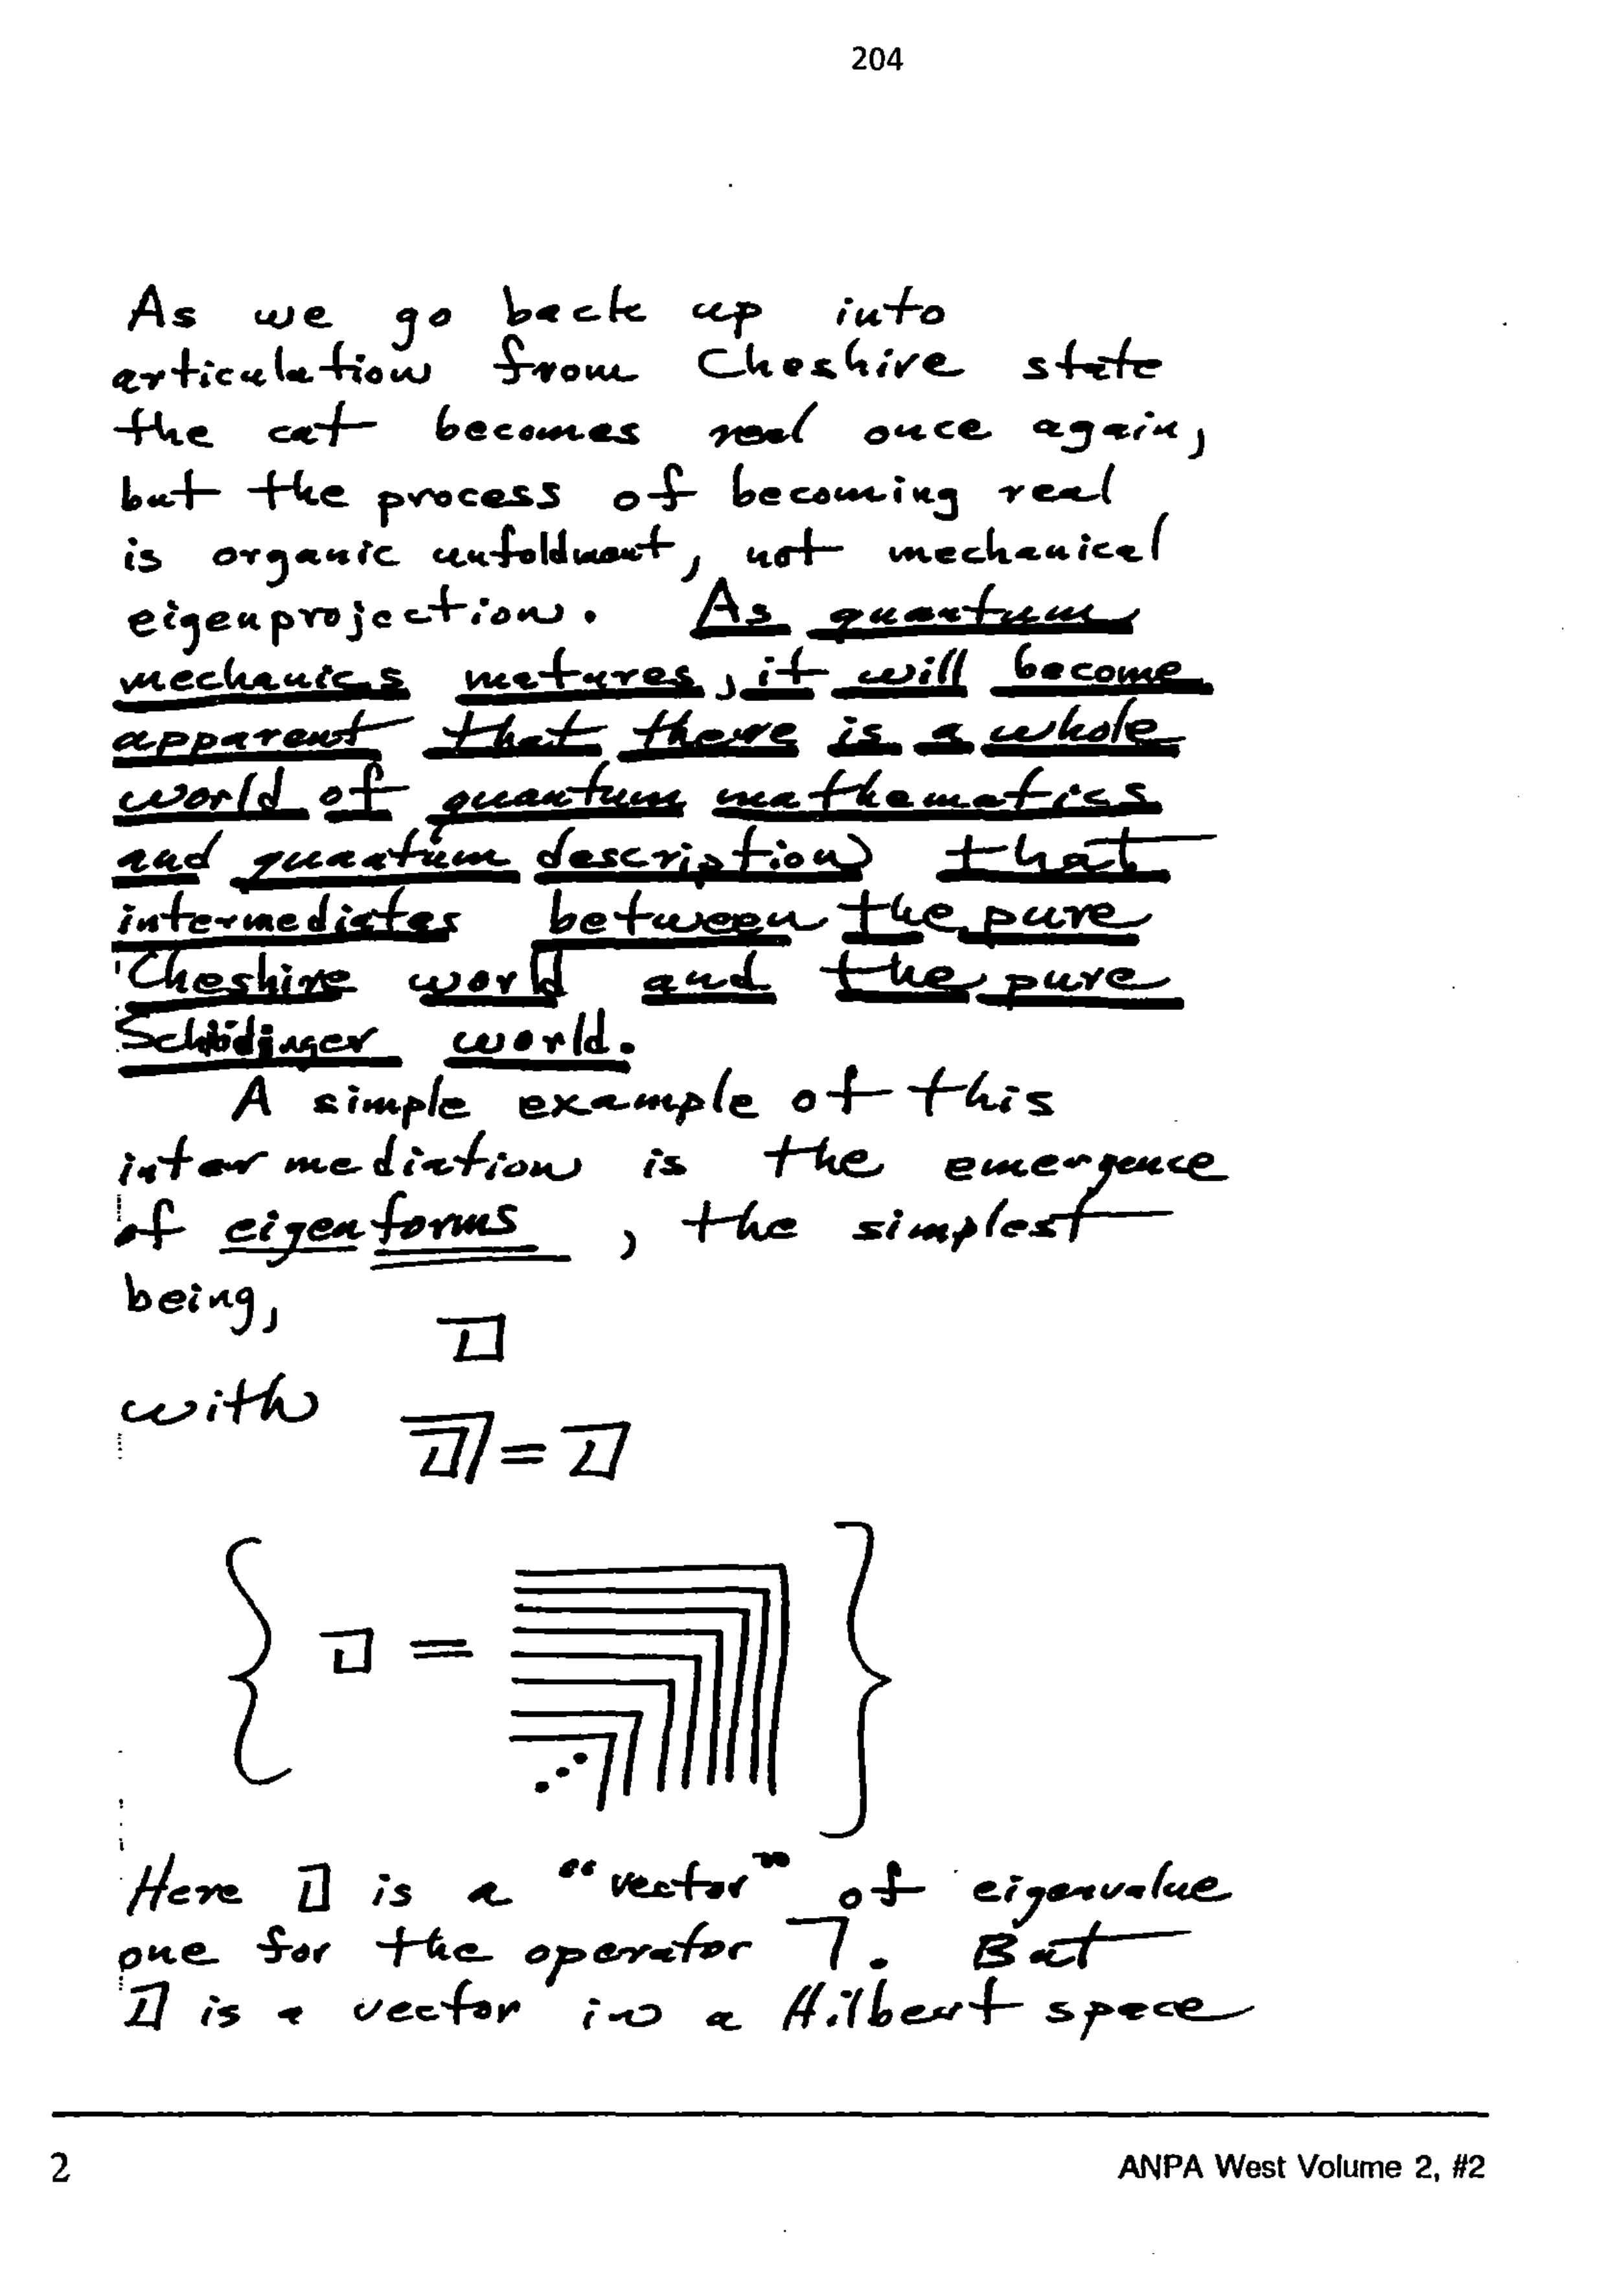 204
As we go back up into
articulation from Cheshire state
the cat becomes real once again,
but the process of becoming real
is organic unfoldment, not mechanical
eigenprojection. As quantum
mechanics matures, it will become
apparent that there is a whole
world of quantum mathematics
and quantum description that
intermediates between the pure
Cheshire world and the pure
Schödinger world.
A simple example of this
intermediation is the emergence
of eigenforms, the simplest
being,
with
=
{ = }
Here is a "vector" of eigenvalue
one for the operator ㄱ. But
is a vector in a Hilbert space
2
ANPA West Volume 2, #2